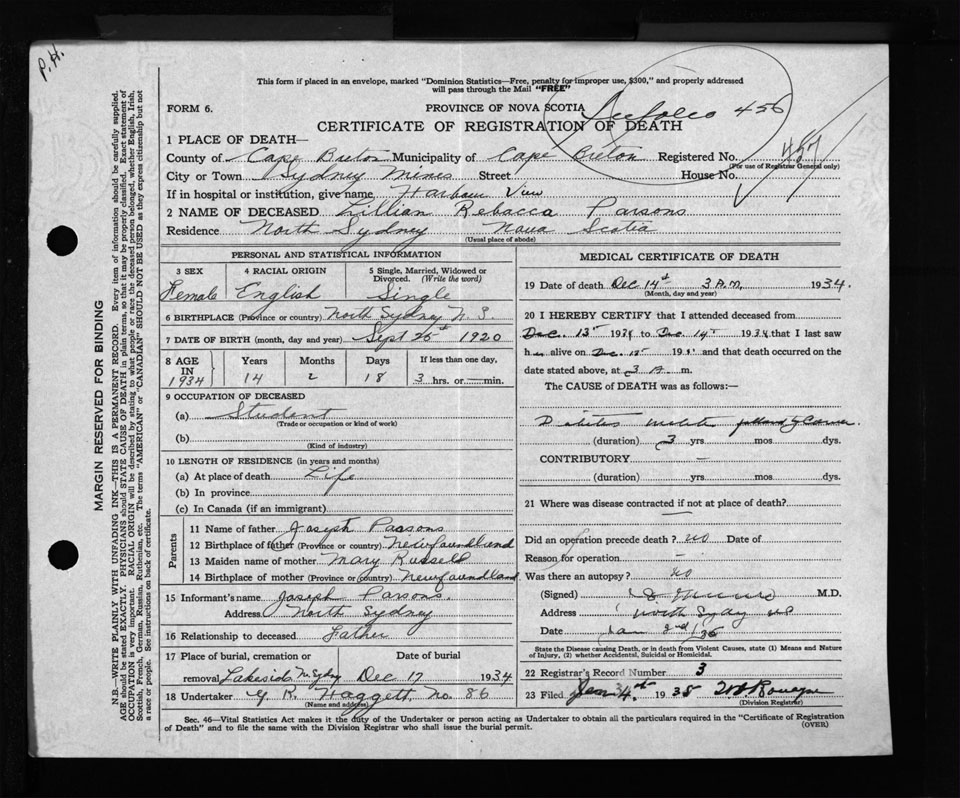 P. H.
This form if placed in an envelope, marked "Dominion Statistics—Free, penalty for improper use, $300," and properly addressed
will pass through the Mail "FREE"
FORM 6.
PROVINCE OF NOVA SCOTIA
456
CERTIFICATE OF REGISTRATION OF DEATH
1 PLACE OF DEATH—
County of Cape Breton Municipality of Cape Breton Registered No. 457
(For use of Registrar General only)
City or Town Sydney Mines Street House No.
If in hospital or institution, give name Harbour View
2 NAME OF DECEASED Lillian Rebacca Parsons
Residence North Sydney Nova Scotia
(Usual place of abode)
PERSONAL AND STATISTICAL INFORMATION
3 SEX
Female
4 RACIAL ORIGIN
English
5 Single, Married, Widowed or
Divorced. (Write the word)
Single
6 BIRTHPLACE (Province or country) North Sydney N. S.
7 DATE OF BIRTH (month, day and year) Sept 25th 1920
8 AGE
IN
1934
Years
14
Months
2
Days
18
If less than one day,
3 hrs. or — min.
9 OCCUPATION OF DECEASED
(a) Student
(Trade or occupation or kind of work)
(b)
(Kind of industry)
10 LENGTH OF RESIDENCE (in years and months)
(a) At place of death Life
(b) In province
(c) In Canada (if an immigrant)
Parents
11 Name of father Joseph Parsons
12 Birthplace of father (Province or country) Newfoundland
13 Maiden name of mother Mary Russell
14 Birthplace of mother (Province or country) Newfoundland
15 Informant's name Joseph Parsons.
Address North Sydney
16 Relationship to deceased Father
17 Place of burial, cremation or
removal Lakeside N. Sydney
Date of burial
Dec 17 1934
18 Undertaker G. R. Haggett No. 86
(Name and address)
MEDICAL CERTIFICATE OF DEATH
19 Date of death Dec 14th 3 A.M, 1934.
(Month, day and year)
20 I HEREBY CERTIFY that I attended deceased from
Dec. 13th 1934 to Dec 14th 1934 that I last saw
her alive on Dec. 13th 193 and that death occurred on
the date stated above, at 3 A. m.
The CAUSE of DEATH was as follows:—
Diabetes
(duration) 3 yrs mos dys.
CONTRIBUTORY —
(duration) yrs mos dys.
21 Where was disease contracted if not at place of death?
—
Did an operation precede death? no Date of
Reason for operation —
Was there an autopsy? no
(Signed) M.D.
Address North Sydney N.S
Date Jan 2nd /35
State the Disease causing Death, or in death from Violent Causes, state (1) Means and Nature
of Injury, (2) whether Accidental, Suicidal or Homicidal.
22 Registrar's Record Number 3
23 Filed, Jan 4th 1935
(Division Registrar)
Sec. 46—Vital Statistics Act makes it the duty of the Undertaker or person acting as Undertaker to obtain all the particulars required in the "Certificate of Registration
of Death" and to file the same with the Division Registrar who shall issue the burial permit.
(OVER)
MARGIN RESERVED FOR BINDING
N.B.—WRITE PLAINLY WITH UNFADING INK—THIS IS A PERMANENT RECORD. Every item of information should be carefully supplied.
AGE should be stated EXACTLY. PHYSICIANS should STATE CAUSE OF DEATH in plain terms, so that it may be properly classified. Exact statement of
OCCUPATION is very important. RACIAL ORIGIN will be described by stating to what people or race the deceased person belonged, whether English, Irish,
Scottish, French, German, Russian, Ruthenian, etc. The terms "AMERICAN" or "CANADIAN" SHOULD NOT BE USED as they express citizenship but not
a race or people. See instructions on back of certificate.